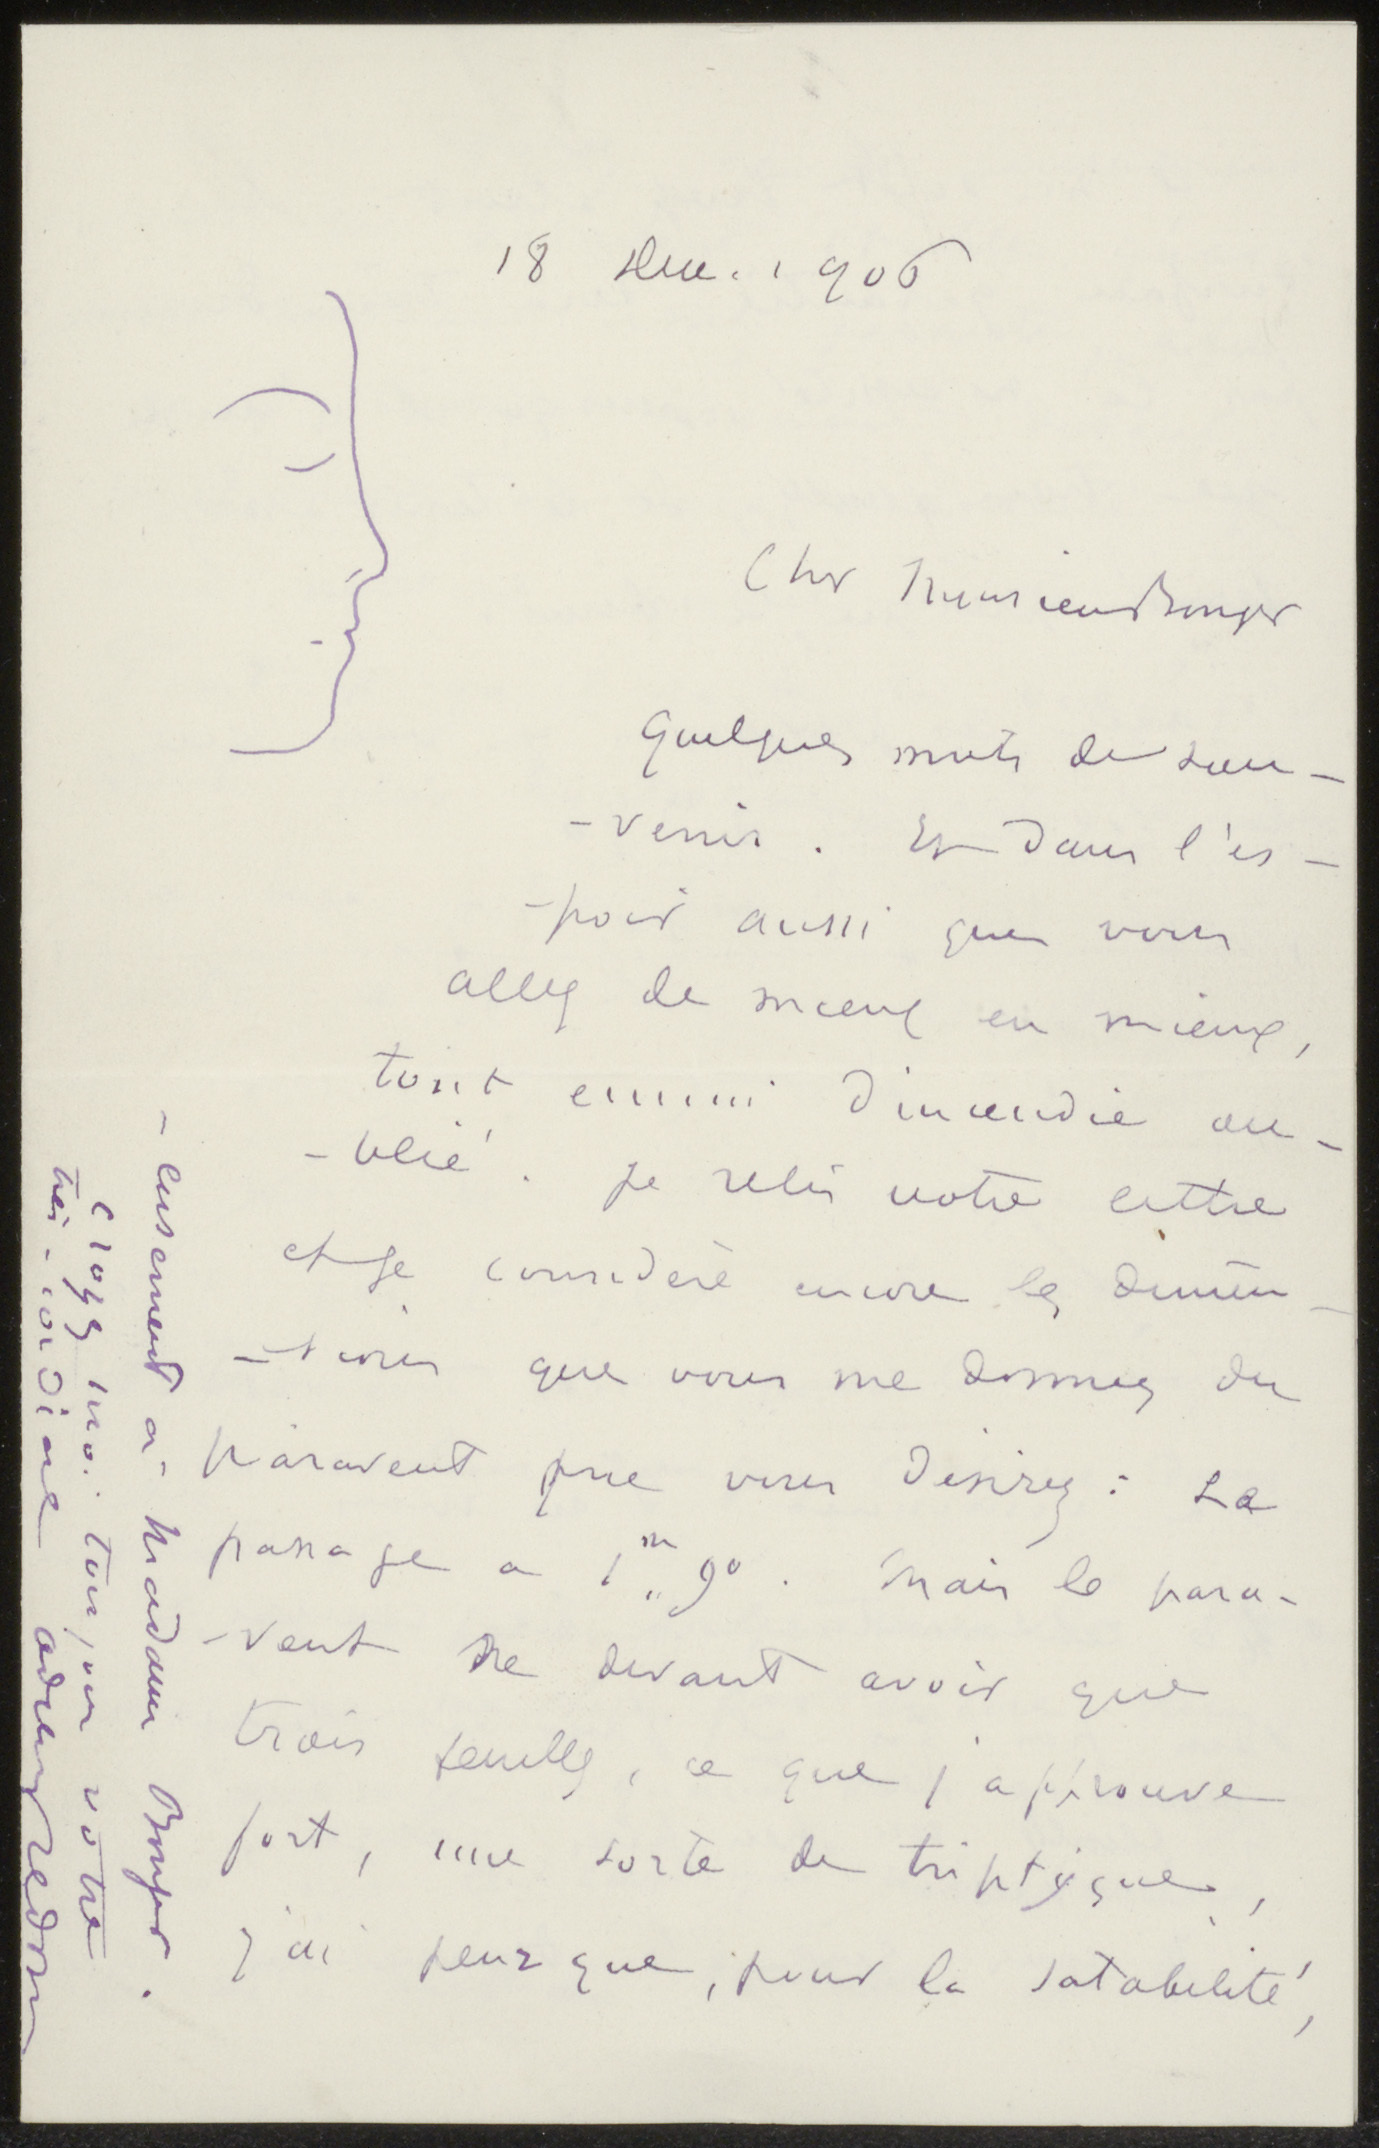 18 Dec. 1906
Cher Monsieur Bonger
Quelques mots de sou-
-venir. Et dans l'es-
-poir aussi que vous
allez de mieux en mieux,
tout ennui d'incendie ou-
-blié. Je relis votre lettre
et je considère encore les dimen-
-sions que vous me donnez du
paravent que vous désirez : Le
passage a 1m,,90. Mais le para-
-vent ne devant avoir que
trois feuilles, ce que j'approuve
fort, une sorte de triptyque,
j'ai peur que, pour la satabilité,
-eusement à Madame Bonger.
Croyez moi toujours votre
très-cordial
odilon redon